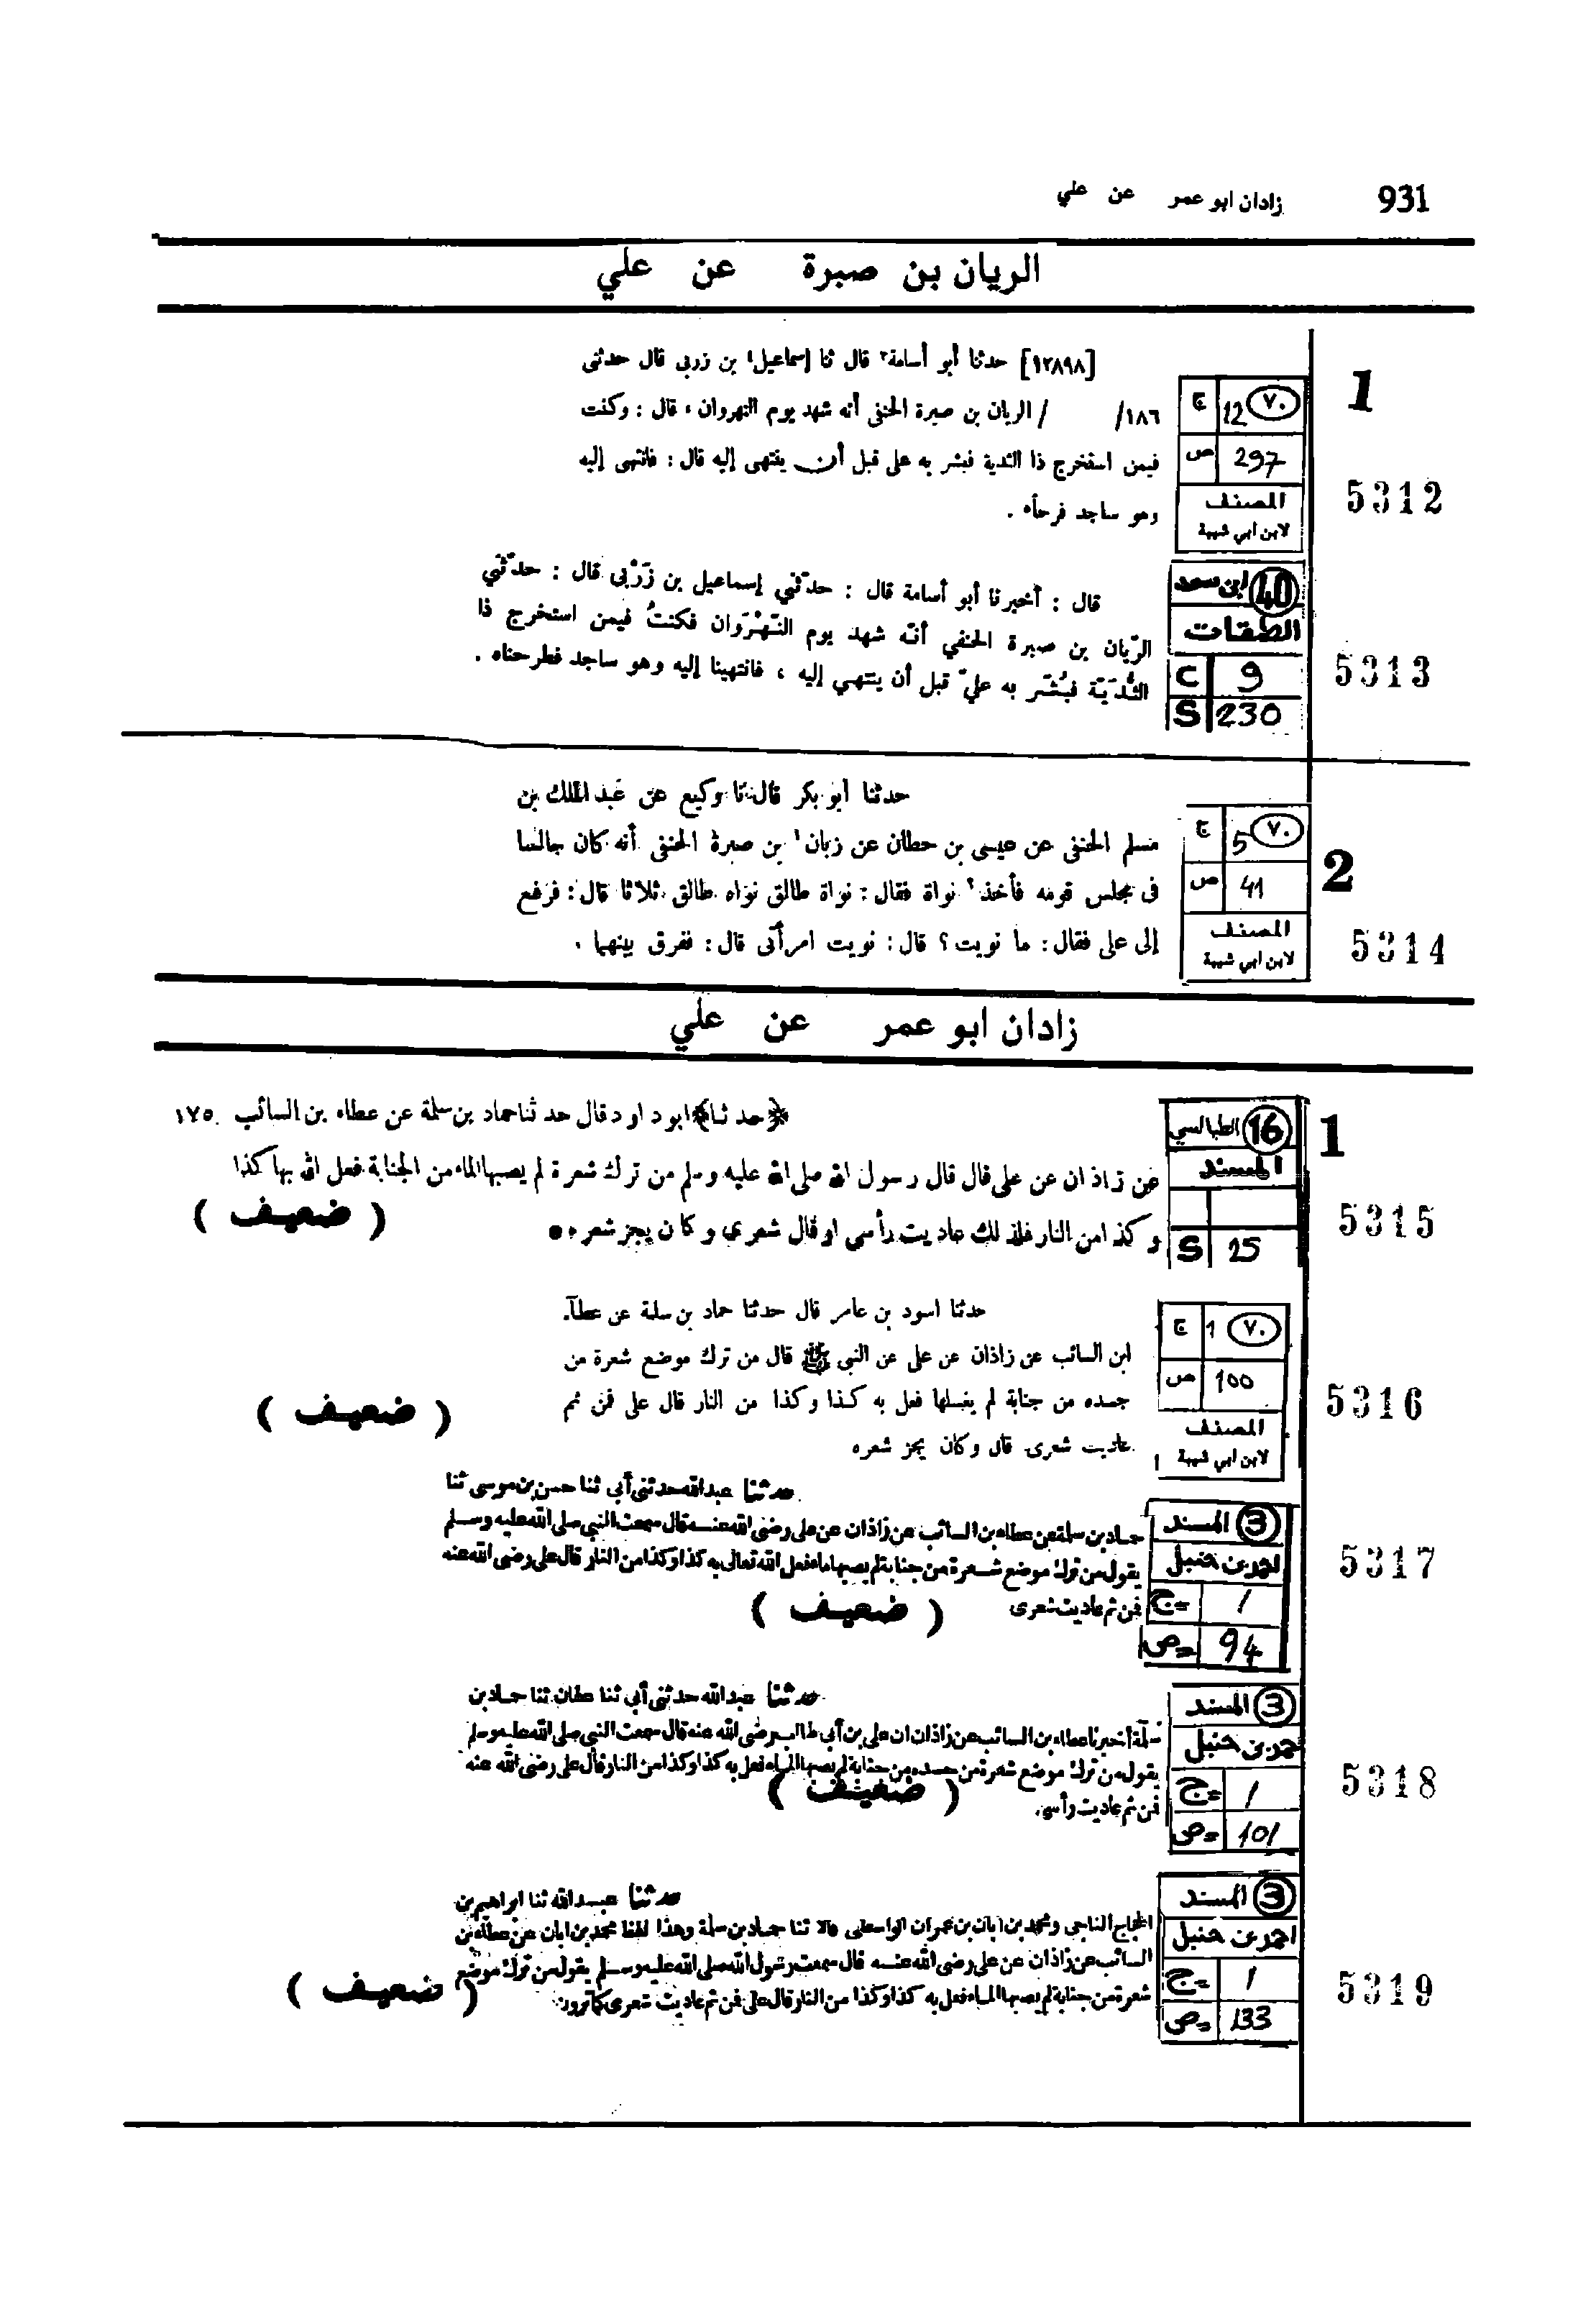 931 زادان ابو عمر عن علي
الريان بن صبرة عن علي
1
5312
٧٠ 12 ج
297 ص
المصنف
لابن ابي شيبة
[١٢٨٩٨] حدثنا أبو أسامة٢ قال ثنا إسماعيل١ بن زربى قال حدثنى
١٨٦/ / الريان بن صبرة الحنفى أنه شهد يوم النهروان ، قال : وكنت
فيمن استخرج ذا الثدية فبشر به على قبل أن ينتهى إليه قال : فانتهى إليه
وهو ساجد فرحاً .
5313
40 ابن سعد
الطبقات
C 9
S 230
قال : أخبرنا أبو أسامة قال : حدّثني إسماعيل بن زَرْبى قال : حدّثني
الرّيان بن صبرة الحنفي أنّه شهد يوم النّهْرَوان فكنتُ فيمن استخرج ذا
الثُّدَيّة فبُشّر به عليّ قبل أن ينتهي إليه ، فانتهينا إليه وهو ساجد فطرحناه .
2
5314
٧٠ 5 ج
41 ص
المصنف
لابن ابي شيبة
حدثنا أبو بكر قال نا وكيع عن عبد الملك بن
مسلم الحنفى عن عيسى بن حطان عن زبان١ بن صبرة الحنفى أنه كان جالسا
فى مجلس قومه فأخذ٢ نواة فقال : نواة طالق نواه طالق ثلاثا قال : فرفع
إلى على فقال : ما نويت ؟ قال : نويت امرأتى قال : ففرق بينهما .
زادان ابو عمر عن علي
1
5315
16 الطيالسي
المسند
S 25
﴿حدثنا﴾ ابوداود قال حدثنا حماد بن سلمة عن عطاء بن السائب ١٧٥
عن زاذان عن على قال قال رسول الله صلى الله عليه وسلم من ترك شعرة لم يصبها الماء من الجنابة فعل الله بها كذا
وكذا من النار فلذلك عاديت رأسى او قال شعري وكان يجز شعره
( ضعيف )
5316
٧٠ 1 ج
100 ص
المصنف
لابن ابي شيبة
حدثنا اسود بن عامر قال حدثنا حماد بن سلمة عن عطآء
ابن السائب عن زاذان عن على عن النبي ﷺ قال من ترك موضع شعرة من
جسده من جنابة لم يغسلها فعل به كذا وكذا من النار قال على فمن ثم
عاديت شعرى قال وكان يجز شعره
( ضعيف )
5317
3 المسند
احمد بن حنبل
ج= 1
ص= 94
حدثنا عبد الله حدثنى أبي ثنا حسن بن موسى ثنا
حماد بن سلمة عن عطاء بن السائب عن زاذان عن على رضى الله عنه قال سمعت النبي صلى الله عليه وسلم
يقول من ترك موضع شعرة من جنابة لم يصبها ماء فعل الله تعالى به كذا وكذا من النار قال على رضى الله عنه
فمن ثم عاديت شعرى
( ضعيف )
5318
3 المسند
احمد بن حنبل
ج= 1
ص= 101
حدثنا عبد الله حدثنى أبي ثنا عفان ثنا حماد بن
سلمة أخبرنا عطاء بن السائب عن زاذان ان على بن أبى طالب رضى الله عنه قال سمعت النبي صلى الله عليه وسلم
يقول من ترك موضع شعرة من جسده من جنابة لم يصبها الماء فعل به كذا وكذا من النار قال على رضى الله عنه
فمن ثم عاديت رأسى
( ضعيف )
5319
3 المسند
احمد بن حنبل
ج= 1
ص= 133
حدثنا عبد الله ثنا ابراهيم بن
الحجاج الناجى ومحمد بن أبان بن عمران الواسطى قالا ثنا حماد بن سلمة وهذا لفظ محمد بن ابان عن عطاء بن
السائب عن زاذان عن على رضى الله عنه قال سمعت رسول الله صلى الله عليه وسلم يقول من ترك موضع
شعرة من جنابة لم يصبها الماء فعل به كذا وكذا من النار قال على فمن ثم عاديت شعرى كما ترون
( ضعيف )